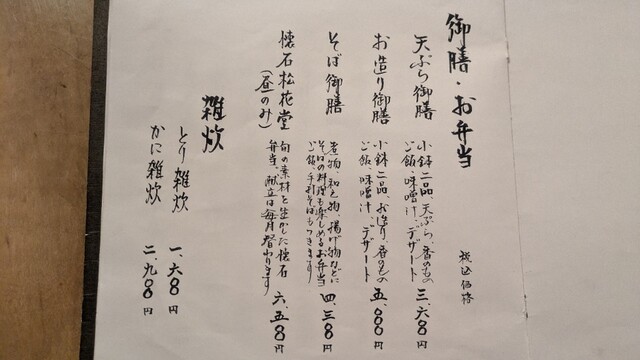 御膳・お弁当
税込価格
天ぷら御膳
小鉢二品、天ぷら、香のもの
ご飯、味噌汁、デザート
三、六〇〇円
お造り御膳
小鉢二品、お造り、香のもの
ご飯、味噌汁、デザート
五、〇〇〇円
そば御膳
煮物、和え物、揚げ物などに
そばの料理も楽しめるお弁当
ご飯、手打そばもつきます
四、三〇〇円
懐石松花堂
(昼のみ)
旬の素材を生かした懐石
弁当、献立は毎月替わります
六、五〇〇円
雑炊
とり雑炊
一、六〇〇円
かに雑炊
二、九〇〇円